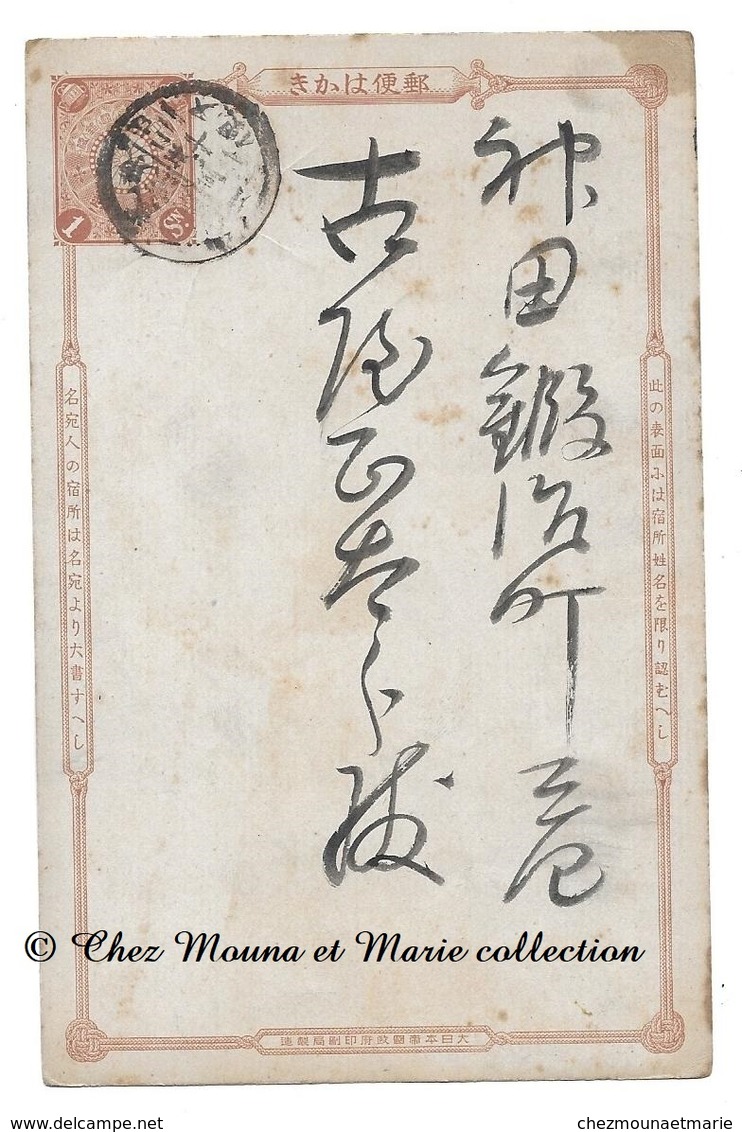 郵便はかき
1
SN.
此の表面には宿所姓名を限り認むへし
神田鍛冶町
古屋正太郎様
名宛人の宿所は名宛より大書すへし
© Chez Mouna et Marie collection
大日本帝國政府印刷局製造
chezmounaetmarie